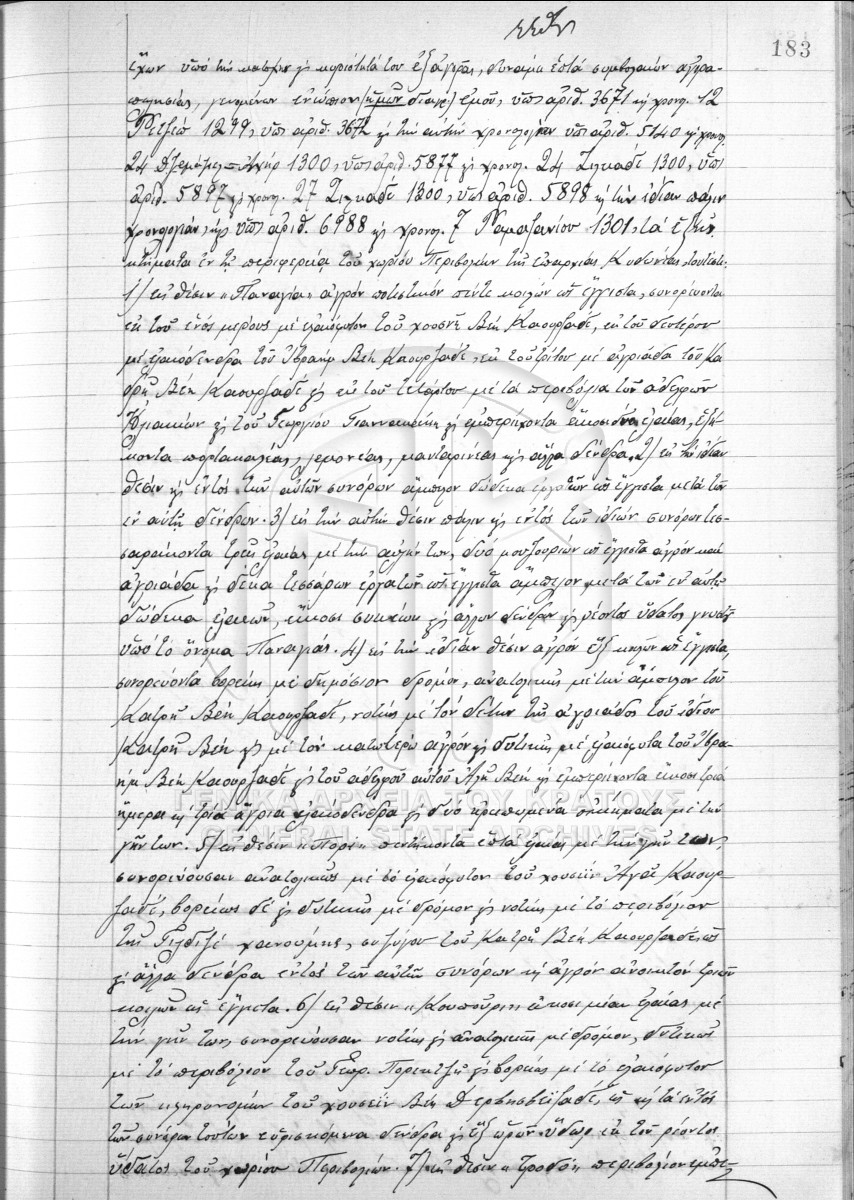 183
ἔχων ὑπό τήν κατοχήν καί κυριότητά του ἐξ ἀγορᾶς, δυνάμει ἑπτά συμβολαίων ἀγορα-
πωλησίας, γενομένων ἐνώπιον (ἡμῶν ἐμοῦ, ὑπ' ἀριθ. 3671 καί χρονολ. 12
Ρετζέπ 1299, ὑπ' ἀριθ. 3672 καί τήν αὐτήν χρονολογίαν ὑπ' ἀριθ. 5140 καί χρονολ.
24 Δζεμάζιλ-Ἀχήρ 1300, ὑπ' ἀριθ. 5877 καί χρονολ. 24 Ζιλκαδέ 1300, ὑπ'
ἀριθ. 5897 καί χρονολ. 27 Ζιλκαδέ 1300, ὑπ' ἀριθ. 5898 καί τήν ἰδίαν πάλιν
χρονολογίαν, καί ὑπ' ἀριθ. 6988 καί χρονολ. 7 Ραμαζανίου 1301, τά ἑξῆς
κτήματα ἐν τῇ περιφερείᾳ τοῦ χωρίου Περιβολίων τῆς ἐπαρχίας Κυδωνίας, τουτέστι:
1) εἰς θέσιν "Παναγία" ἀγρόν ποτιστικόν πέντε κοιλῶν ὡς ἔγγιστα, συνορεύοντα
ἐκ τοῦ ἑνός μέρους μέ ἐλαιόφυτον τοῦ Χουσνῆ Βέη Καουρζαδέ, ἐκ τοῦ δευτέρου
μέ ἐλαιόδενδρα τοῦ Ἰβραήμ Βέη Καουρζαδέ, ἐκ τοῦ τρίτου μέ ἀγριάδα τοῦ Κα-
δρῆ Βέη Καουρζαδέ καί ἐκ τοῦ τετάρτου μέ τά περιβόλια τῶν ἀδελφῶν
Ἠλιακῶν καί τοῦ Γεωργίου Γιαννακάκη καί ἐμπεριέχοντα εἴκοσι ἐλαίας, ἑξή-
κοντα πορτοκαλέας, λεμονέας, μανταρινέας καί ἄλλα δένδρα. 2) εἰς τήν ἰδίαν
θέσιν καί ἐντός τῶν αὐτῶν συνόρων ἄμπελον δώδεκα ἐργατῶν ὡς ἔγγιστα μετά τῶν
ἐν αὐτῇ δένδρων. 3) εἰς τήν αὐτήν θέσιν πάλιν καί ἐντός τῶν ἰδίων συνόρων τεσ-
σαράκοντα τρεῖς ἐλαίας μέ τήν γῆν των, δύο μουζουρίων ὡς ἔγγιστα ἀγρόν καί
ἀγριάδα καί δέκα τεσσάρων ἐργατῶν ὡς ἔγγιστα ἄμπελον μετά τῶν ἐν αὐτῇ
δώδεκα ἐλαιῶν, εἴκοσι συκεῶν καί ἄλλων δένδρων καί ρέοντος ὕδατος γνωστοῦ
ὑπό τό ὄνομα Παναγιᾶς. 4) εἰς τήν ἰδίαν θέσιν ἀγρόν ἕξ κοιλῶν ὡς ἔγγιστα,
συνορεύοντα βορείως μέ δημόσιον δρόμον, ἀνατολικῶς μέ τήν ἄμπελον τοῦ
Κατρῆ Βέη Καουρζαδέ, νοτίως μέ τόν δέτην τῆς ἀγριάδος τοῦ ἰδίου
Κατρῆ Βέη καί μέ τόν κατωτέρω ἀγρόν καί δυτικῶς μέ ἐλαιόφυτα τοῦ Ἰβρα-
ήμ Βέη Καουρζαδέ καί τοῦ ἀδελφοῦ αὐτοῦ Ἀλῆ Βέη καί ἐμπεριέχοντα εἴκοσι τρία
ἥμερα καί τρία ἄγρια ἐλαιόδενδρα καί δύο οἰκήματα μέ τήν
γῆν των. 5) εἰς θέσιν "Πόροι" πεντήκοντα ἑπτά ἐλαίας μέ τήν γῆν των,
συνορευούσας ἀνατολικῶς μέ τό ἐλαιόφυτον τοῦ Χουσεΐν Ἀγᾶ Καουρ-
ζαδέ, βορείως δέ καί δυτικῶς μέ δρόμον καί νοτίως μέ τό περιβόλιον
τῆς Γιλδιζέ χανούμης, συζύγου τοῦ Κατρῆ Βέη Καουρζαδέ, ὡς
καί ἄλλα δένδρα ἐντός τῶν αὐτῶν συνόρων καί ἀγρόν ἀνοικτόν τριῶν
κοιλῶν ὡς ἔγγιστα. 6) εἰς θέσιν "Κουπούρη" εἴκοσι μίαν ἐλαίας μέ
τήν γῆν των, συνορευούσας νοτίως καί ἀνατολικῶς μέ δρόμον, δυτικῶς
μέ τό περιβόλιον τοῦ Γεωρ. καί βορείως μέ τό ἐλαιόφυτον
τῶν κληρονόμων τοῦ Χουσεΐν Βέη Δερβησβεϊζαδέ, ὡς καί τά ἐντός
τῶν συνόρων τούτων εὑρισκόμενα δένδρα καί ἕξ ὡρῶν ὕδωρ ἐκ τοῦ ρέοντος
ὕδατος τοῦ χωρίου Περιβολίων. 7) εἰς θέσιν περιβόλιον ἐμπε-
ΓΕΝΙΚΑ ΑΡΧΕΙΑ ΤΟΥ ΚΡΑΤΟΥΣ
GENERAL STATE ARCHIVES